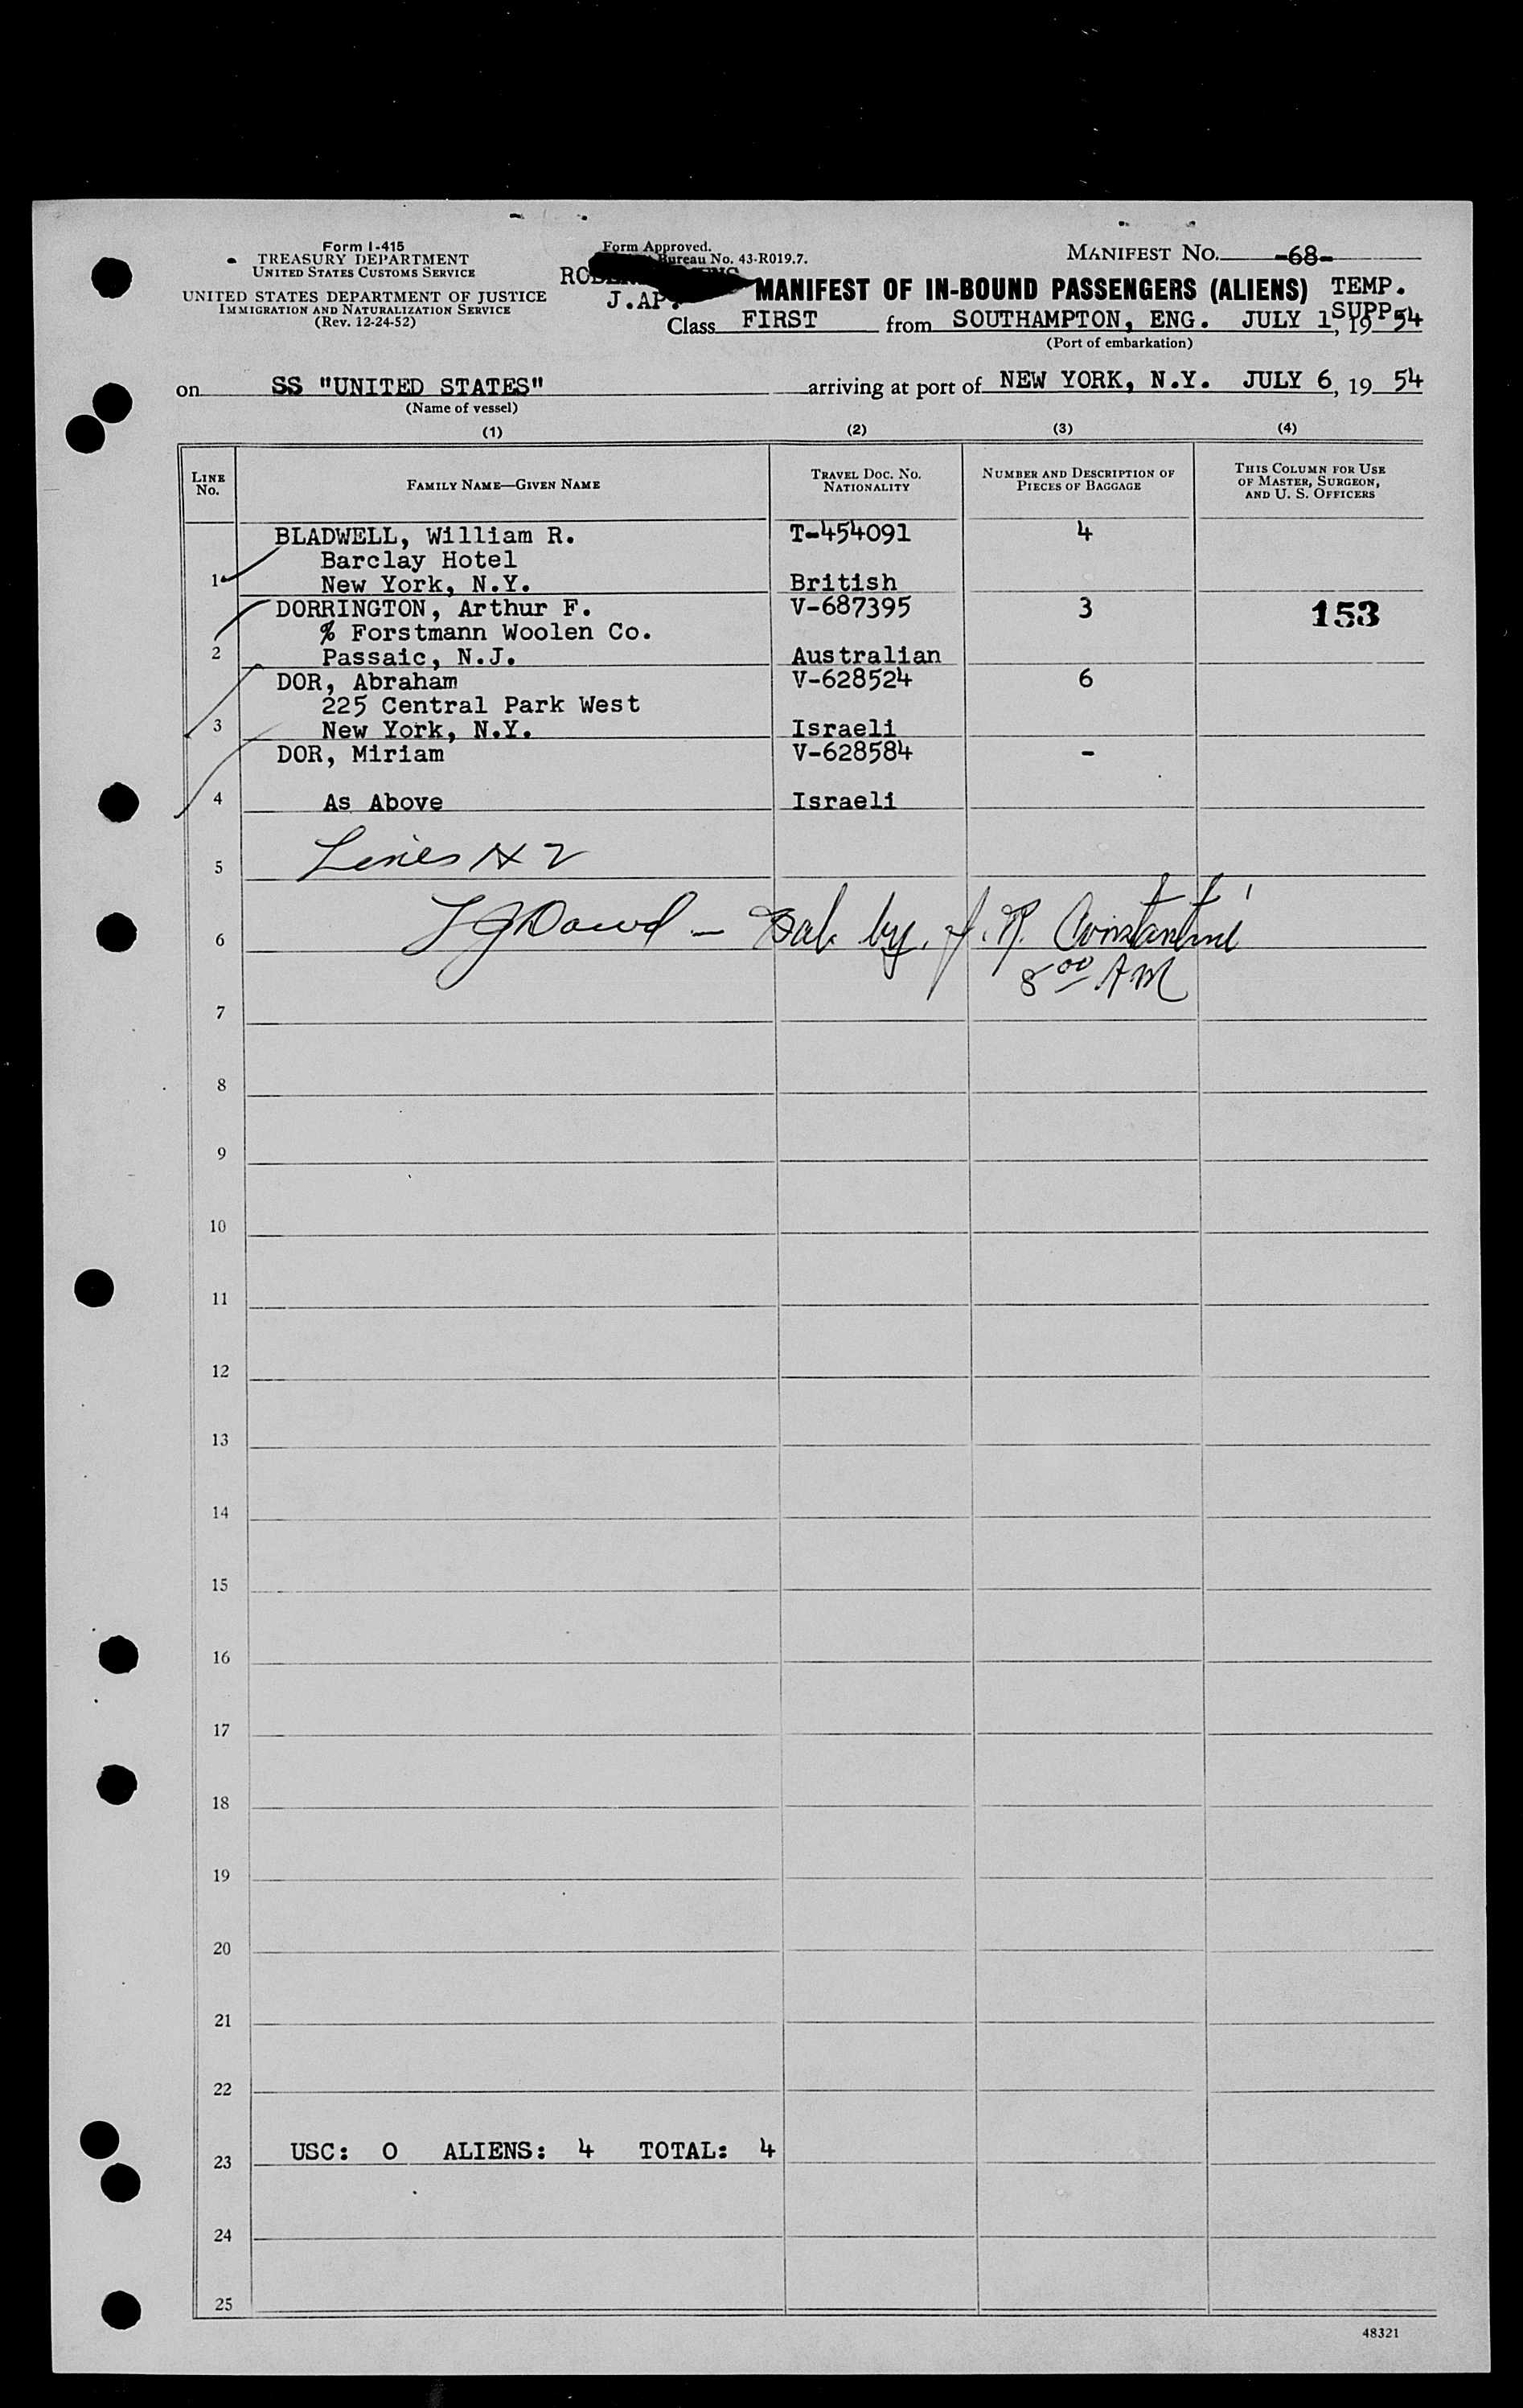 Form I-415
TREASURY DEPARTMENT
UNITED STATES CUSTOMS SERVICE
UNITED STATES DEPARTMENT OF JUSTICE
IMMIGRATION AND NATURALIZATION SERVICE
(Rev. 12-24-52)
Form Approved.
Bureau No. 43-R019.7.
J.AP.
MANIFEST No. -68-
MANIFEST OF IN-BOUND PASSENGERS (ALIENS) TEMP. SUPP.
Class FIRST from SOUTHAMPTON, ENG. JULY 1, 19 54
(Port of embarkation)
on SS "UNITED STATES" arriving at port of NEW YORK, N.Y. JULY 6, 19 54
(Name of vessel)
(1) (2) (3) (4)
LINE No. FAMILY NAME—GIVEN NAME TRAVEL DOC. NO. NATIONALITY NUMBER AND DESCRIPTION OF PIECES OF BAGGAGE THIS COLUMN FOR USE OF MASTER, SURGEON, AND U. S. OFFICERS
BLADWELL, William R. T-454091 4
Barclay Hotel
1 New York, N.Y. British
DORRINGTON, Arthur F. V-687395 3 153
% Forstmann Woolen Co.
2 Passaic, N.J. Australian
DOR, Abraham V-628524 6
225 Central Park West
3 New York, N.Y. Israeli
DOR, Miriam V-628584 -
4 As Above Israeli
5 Lines 1 & 2
6 by J. R. Constantine
8 00 AM
7
8
9
10
11
12
13
14
15
16
17
18
19
20
21
22
23 USC: 0 ALIENS: 4 TOTAL: 4
24
25
48321